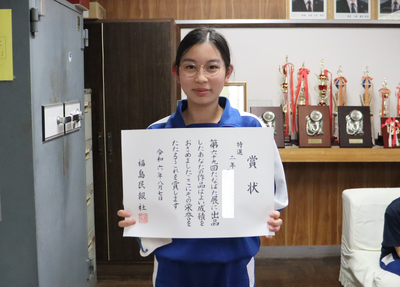 賞状
特選
二年
第六十九回たなばた展に出品
したあなたの作品はよい成績を
おさめました ここにその栄誉を
たたえこれを賞します
令和六年八月七日
福島民報社